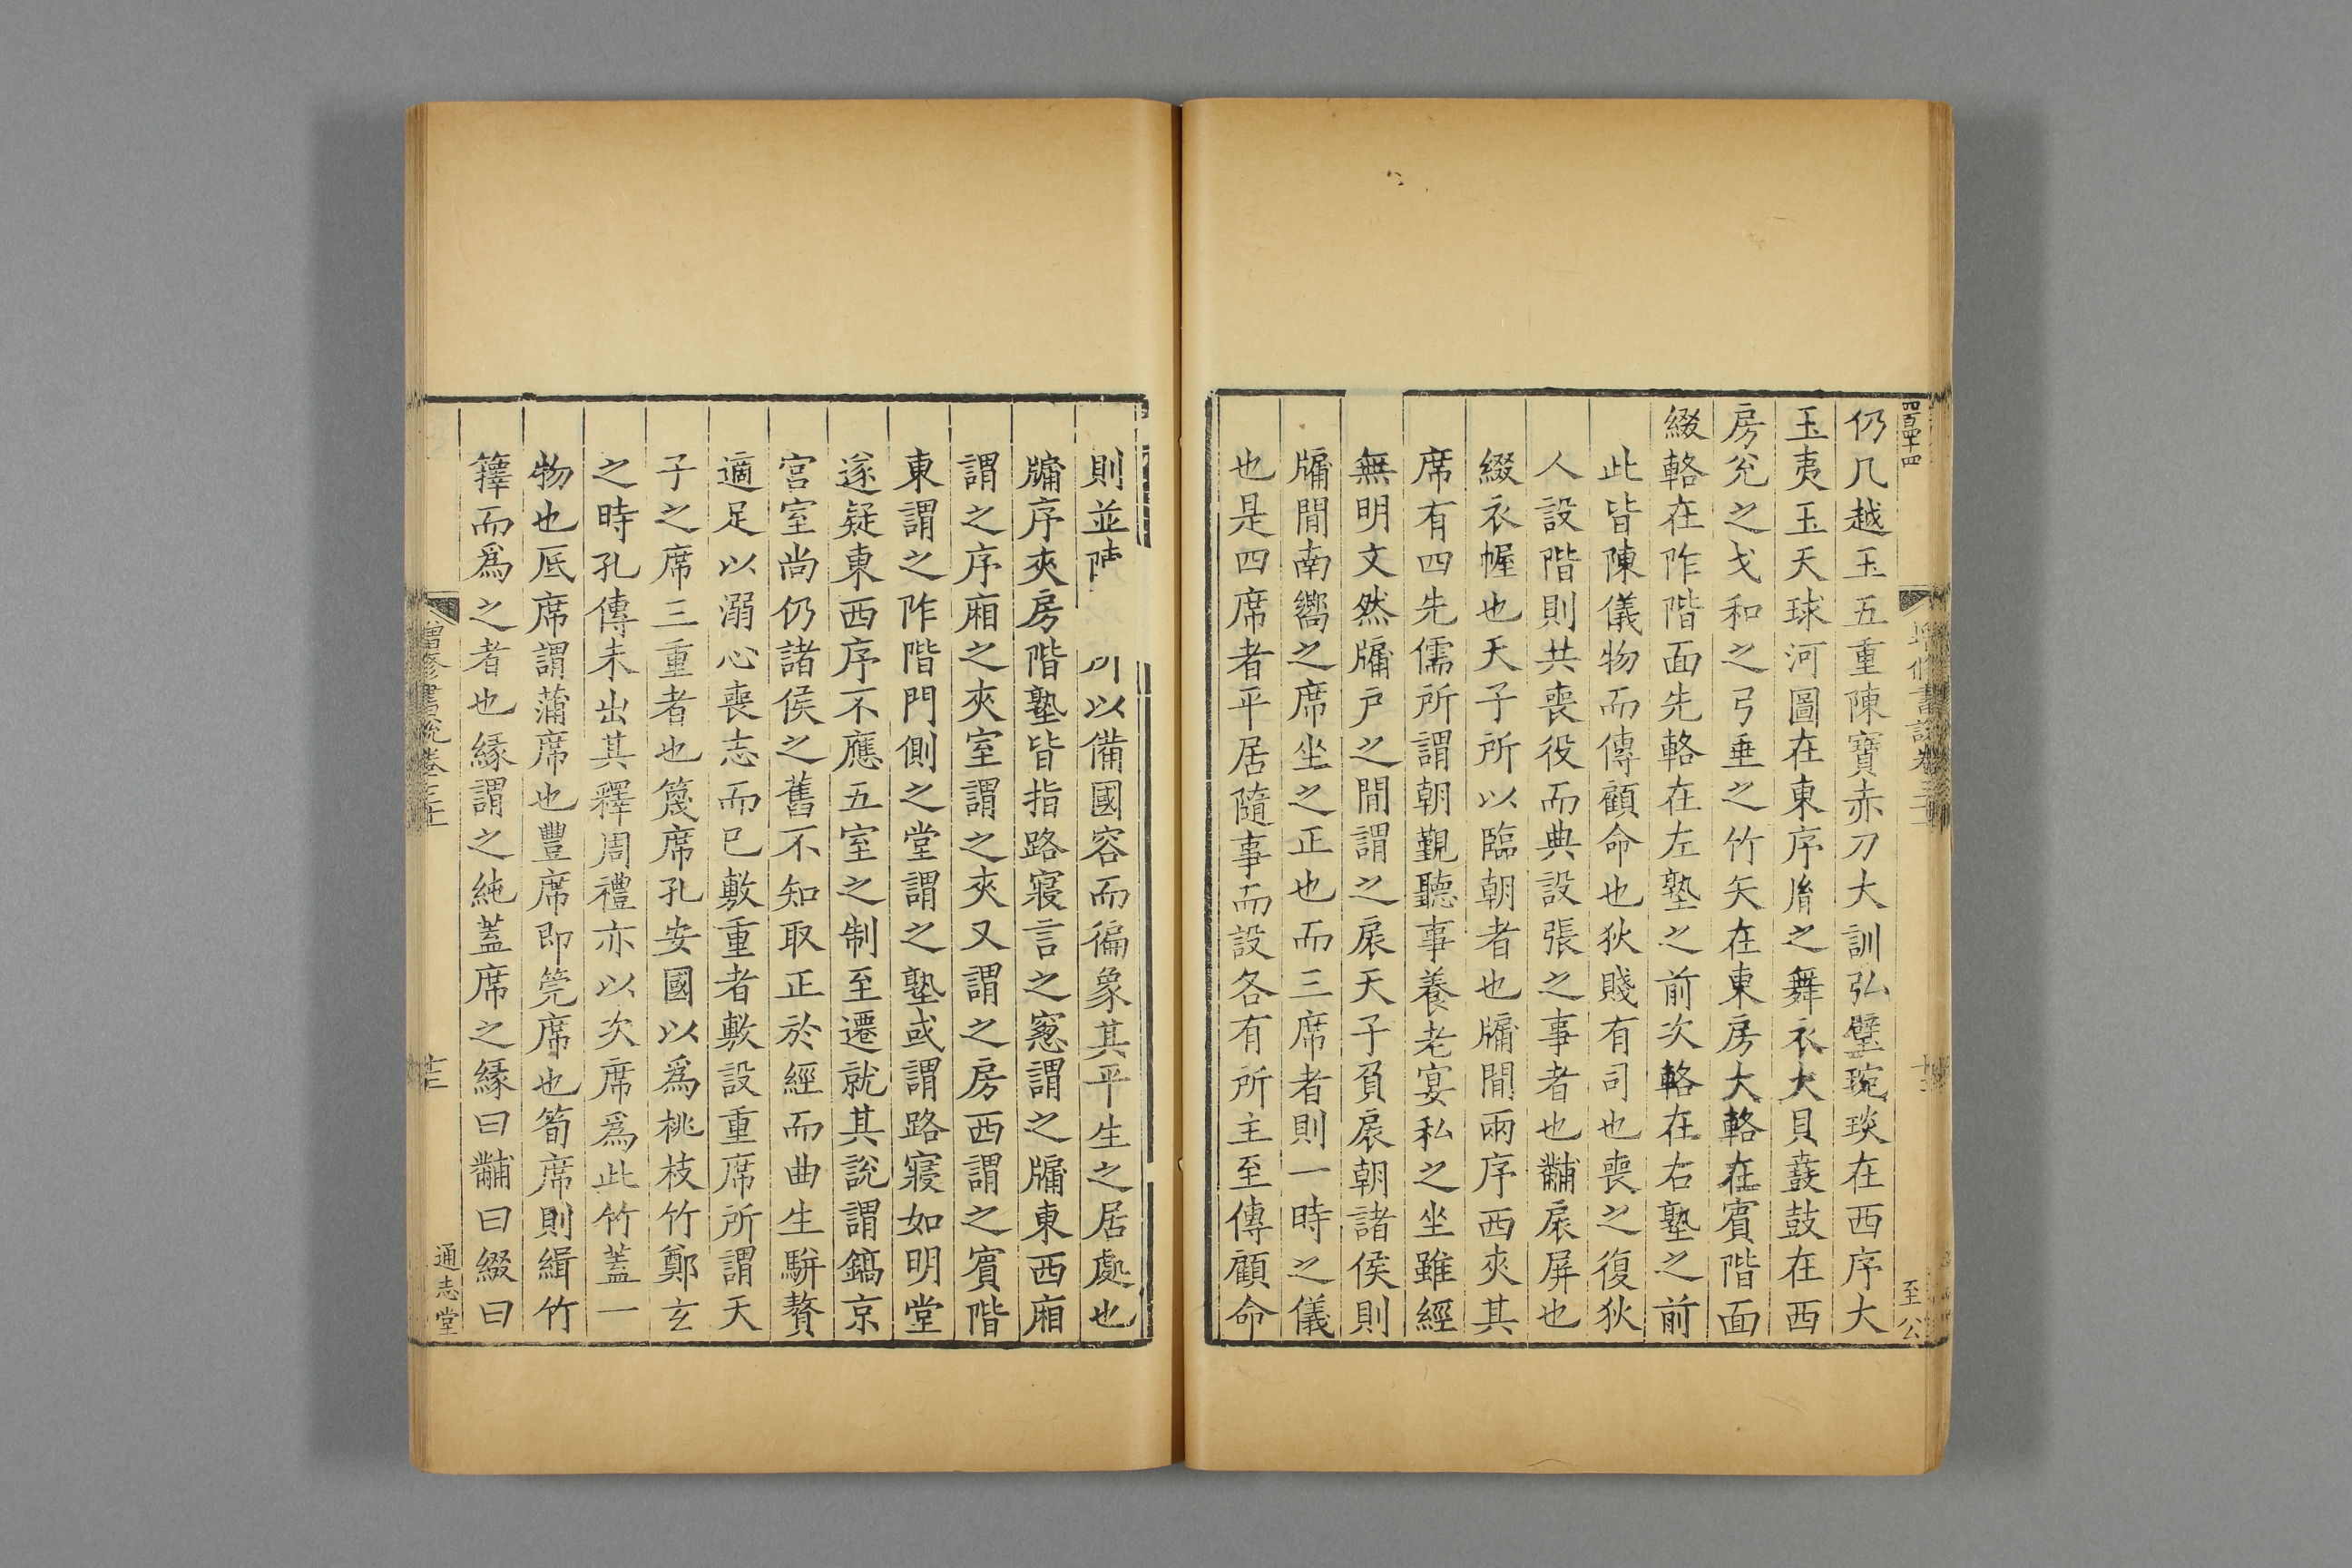 仍几越玉五重陳寶赤刀大訓弘璧琬琰在西序大
玉夷玉天球河圖在東序胤之舞衣大貝鼖鼓在西
房兊之戈和之弓垂之竹矢在東房大輅在賓階面
綴輅在阼階面先輅在左塾之前次輅在右塾之前
此皆陳儀物而傳顧命也狄賤有司也喪之復狄
人設階則共喪役而典設張之事者也黼扆屏也
綴衣幄也天子所以臨朝者也牖間兩序西夾其
席有四先儒所謂朝覲聽事養老宴私之坐雖經
無明文然牖戶之間謂之扆天子負扆朝諸侯則
牖間南嚮之席坐之正也而三席者則一時之儀
也是四席者平居隨事而設各有所主至傳顧命
則並以備國容而徧象其平生之居處也
牖序夾房階塾皆指路寢言之窻謂之牖東西廂
謂之序廂之夾室謂之夾又謂之房西謂之賓階
東謂之阼階門側之堂謂之塾或謂路寢如明堂
遂疑東西序不應五室之制至遷就其說謂鎬京
宮室尚仍諸侯之舊不知取正於經而曲生駢贅
適足以溺心喪志而已敷重者敷設重席所謂天
子之席三重者也篾席孔安國以為桃枝竹鄭玄
之時孔傳未出其釋周禮亦以次席為此竹蓋一
物也底席謂蒲席也豐席即筦席也筍席則緝竹
籜而為之者也緣謂之純蓋席之緣曰黼曰綴曰
通志堂